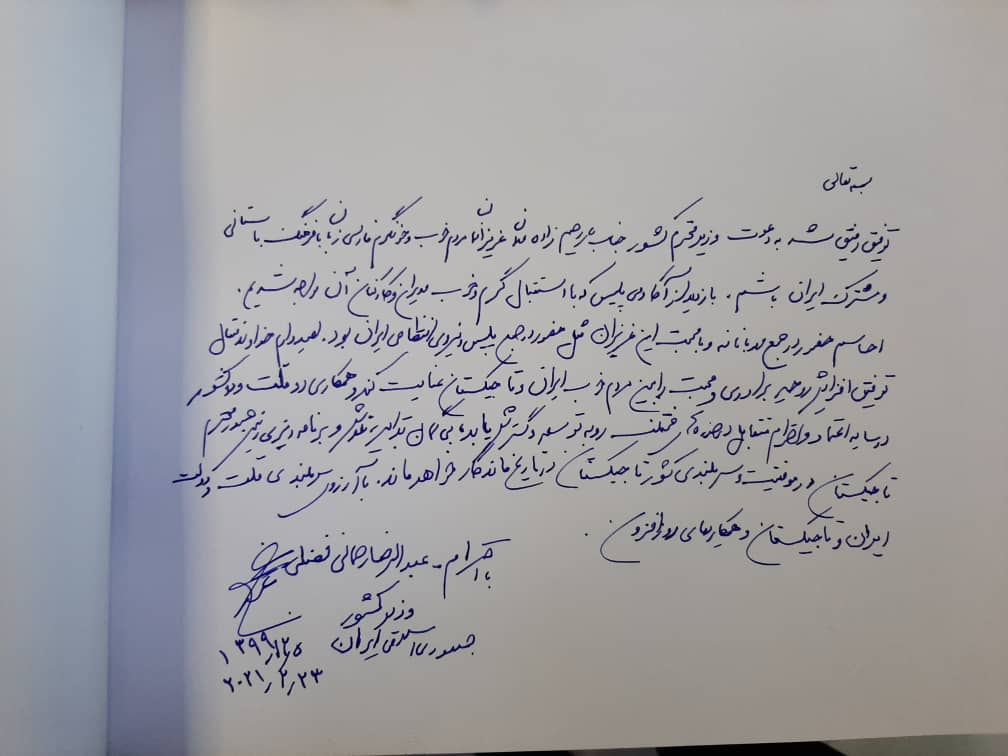 بسمه تعالی
توفیق رفیق شد به دعوت وزیر محترم کشور جناب رحیم زاده عزیز مردم خوب و خونگرم فارسی زبان با فرهنگ باستانی
و مشترک ایران باشم. بازدید از آکادمی پلیس که با استقبال گرم و خوب مدیران و کارکنان آن مواجه شدیم.
احساسم حضور در جمع صمیمانه و با محبت این عزیزان مثل حضور در جمع پلیس و نیروی انتظامی ایران بود. امیدوارم خداوند متعال
توفیق افزایش روحیه برادری و محبت را بین مردم خوب ایران و تاجیکستان عنایت کند و همکاری دو ملت و دو کشور
در سایه اعتماد و احترام متقابل در حوزه های مختلف رو به توسعه و گسترش یابد. بی گمان تدابیر، تلاش و برنامه ریزی رئیس جمهور محترم
تاجیکستان در موفقیت و سربلندی کشور تاجیکستان در تاریخ ماندگار خواهد ماند. با آرزوی سربلندی ملت و دولت
ایران و تاجیکستان و همکاریهای روزافزون.
با احترام - عبدالرضا رحمانی فضلی
وزیر کشور
جمهوری اسلامی ایران
۱۳۹۹/۱۲/۵
۲۰۲۱/۲/۲۳